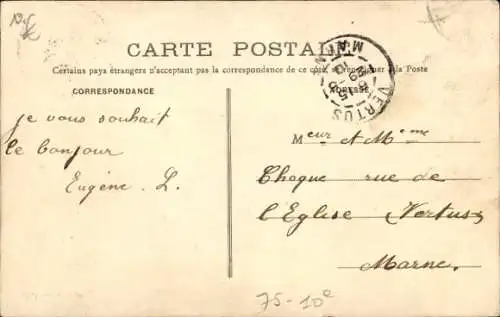 CARTE POSTALE
Certains pays étrangers n'acceptant pas la correspondance de ce côté, se renseigner à la Poste
CORRESPONDANCE
ADRESSE
VERTUS
je vous souhait
le bonjour
Eugène. L.
Meur et Meme
Choque rue de
l'Eglise Vertus
Marne.
75-10e